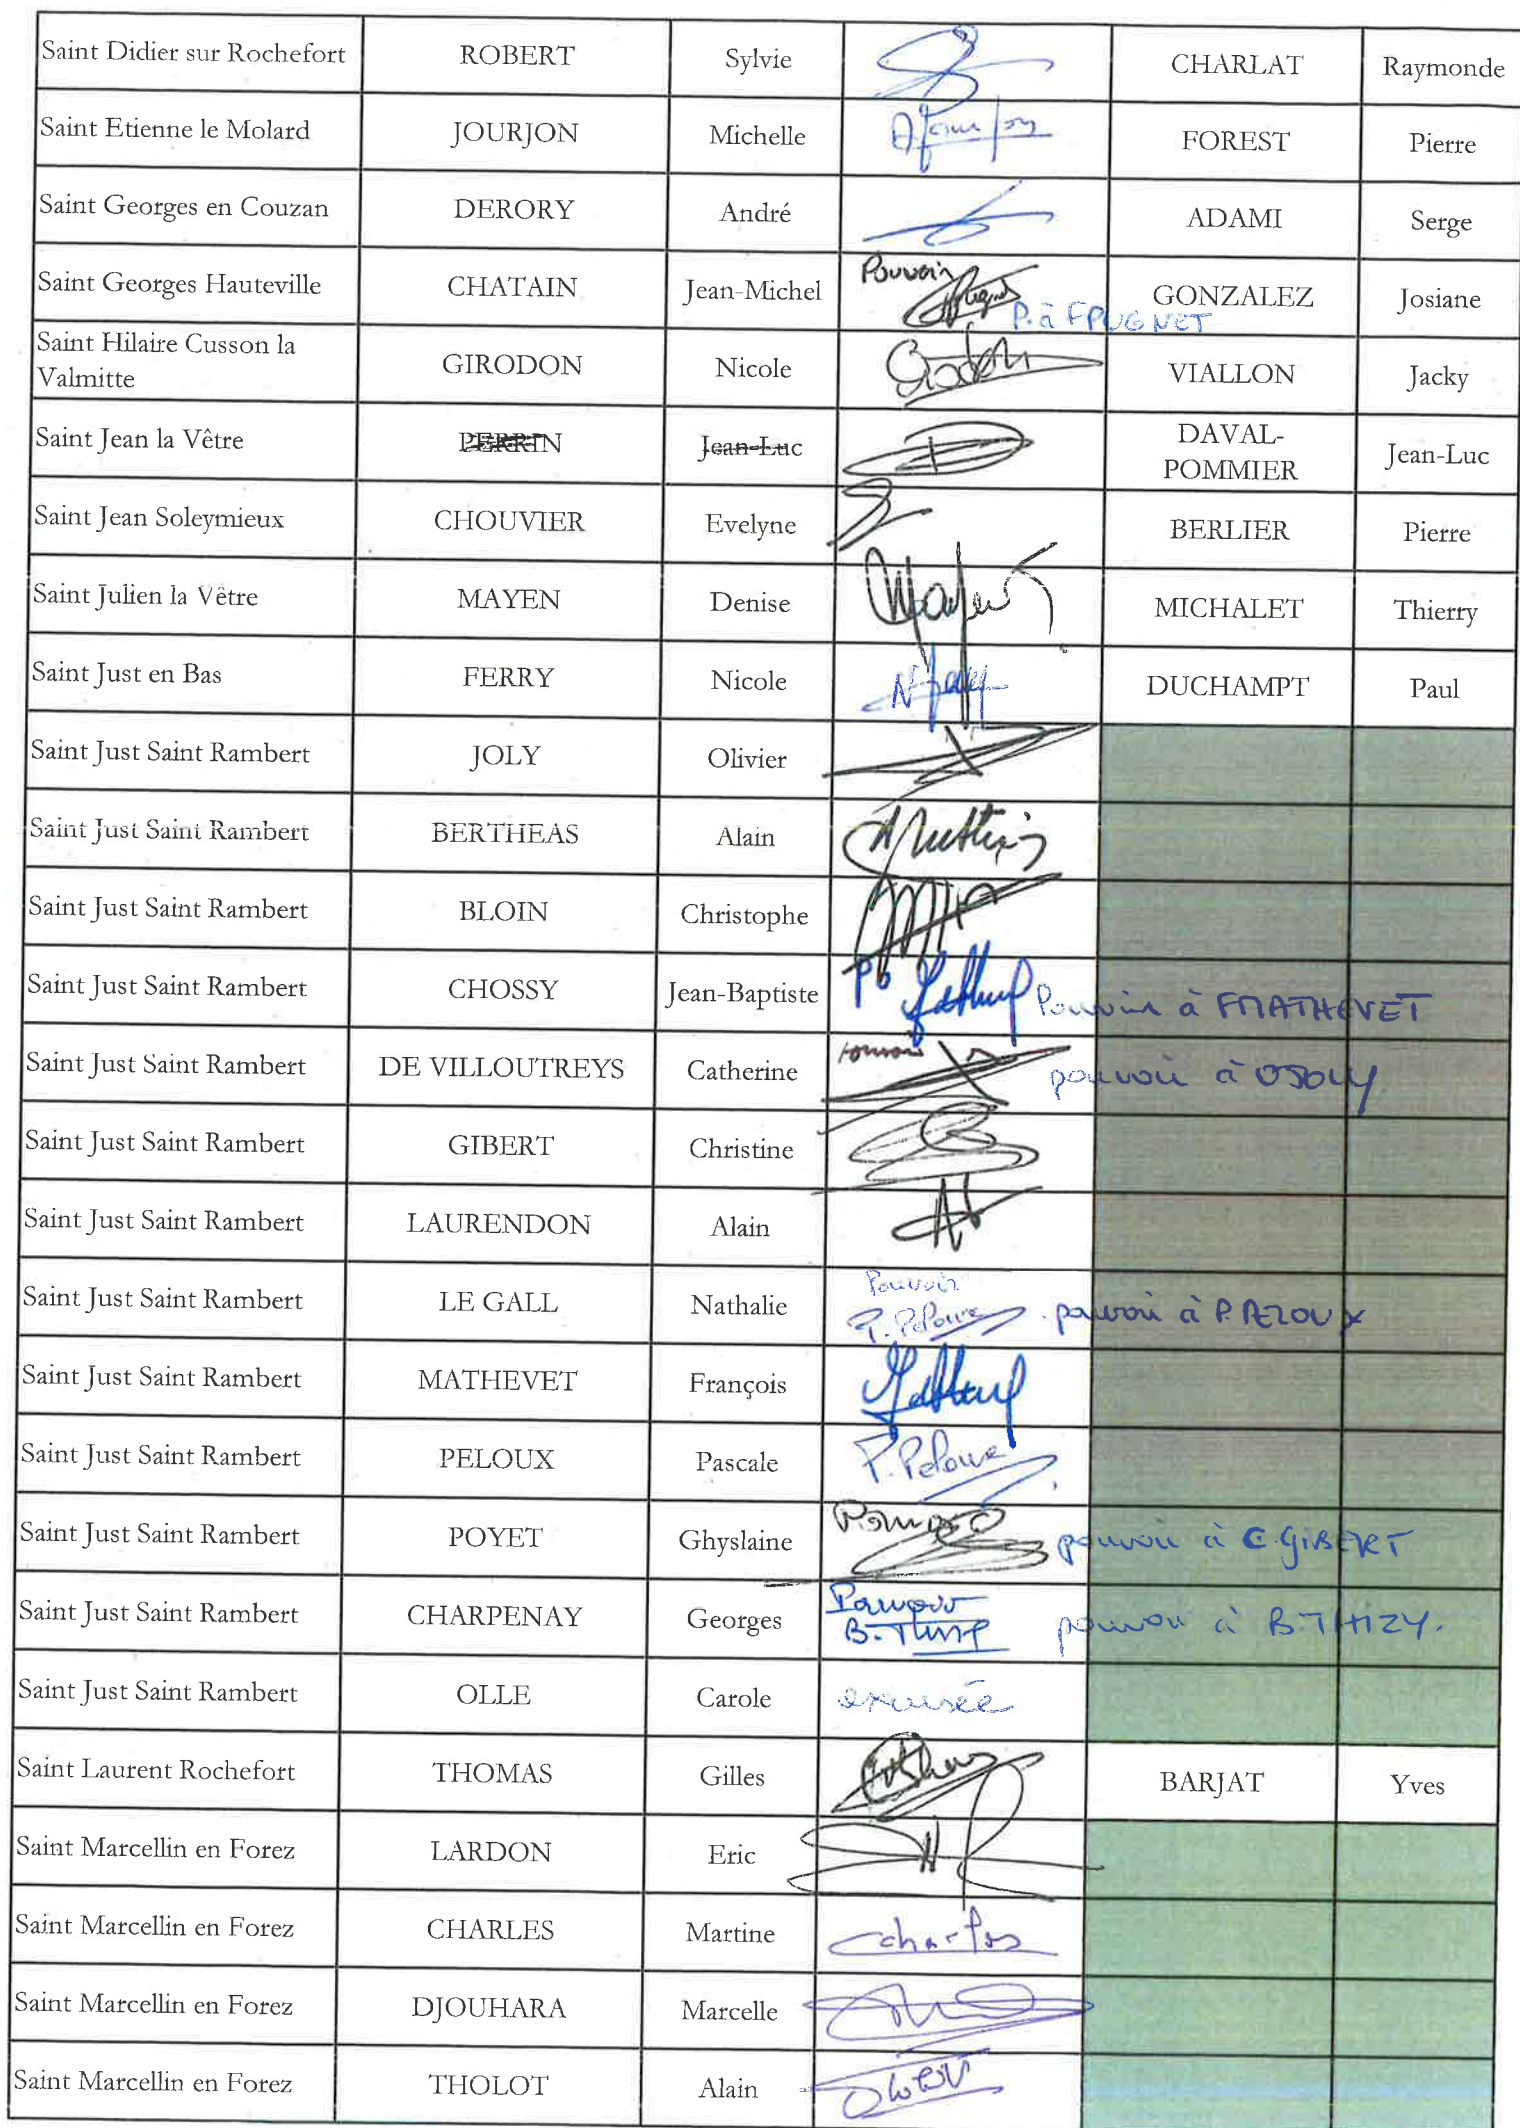 Saint Didier sur Rochefort ROBERT Sylvie CHARLAT Raymonde
Saint Etienne le Molard JOURJON Michelle FOREST Pierre
Saint Georges en Couzan DERORY André ADAMI Serge
Saint Georges Hauteville CHATAIN Jean-Michel Pouvoir P. à F PUGNET GONZALEZ Josiane
Saint Hilaire Cusson la
Valmitte GIRODON Nicole Girodon VIALLON Jacky
Saint Jean la Vêtre PERRIN Jean-Luc DAVAL-
POMMIER Jean-Luc
Saint Jean Soleymieux CHOUVIER Evelyne BERLIER Pierre
Saint Julien la Vêtre MAYEN Denise MICHALET Thierry
Saint Just en Bas FERRY Nicole DUCHAMPT Paul
Saint Just Saint Rambert JOLY Olivier
Saint Just Saint Rambert BERTHEAS Alain
Saint Just Saint Rambert BLOIN Christophe
Saint Just Saint Rambert CHOSSY Jean-Baptiste Pouvoir à F MATHEVET
Saint Just Saint Rambert DE VILLOUTREYS Catherine Pouvoir pouvoir à O JOLY
Saint Just Saint Rambert GIBERT Christine
Saint Just Saint Rambert LAURENDON Alain
Saint Just Saint Rambert LE GALL Nathalie Pouvoir P. Peloux pouvoir à P. PELOUX
Saint Just Saint Rambert MATHEVET François
Saint Just Saint Rambert PELOUX Pascale P. Peloux
Saint Just Saint Rambert POYET Ghyslaine Pouvoir pouvoir à C. GIBERT
Saint Just Saint Rambert CHARPENAY Georges Pouvoir B. Thizy pouvoir à B. THIZY.
Saint Just Saint Rambert OLLE Carole excusée
Saint Laurent Rochefort THOMAS Gilles BARJAT Yves
Saint Marcellin en Forez LARDON Eric
Saint Marcellin en Forez CHARLES Martine Charles
Saint Marcellin en Forez DJOUHARA Marcelle
Saint Marcellin en Forez THOLOT Alain